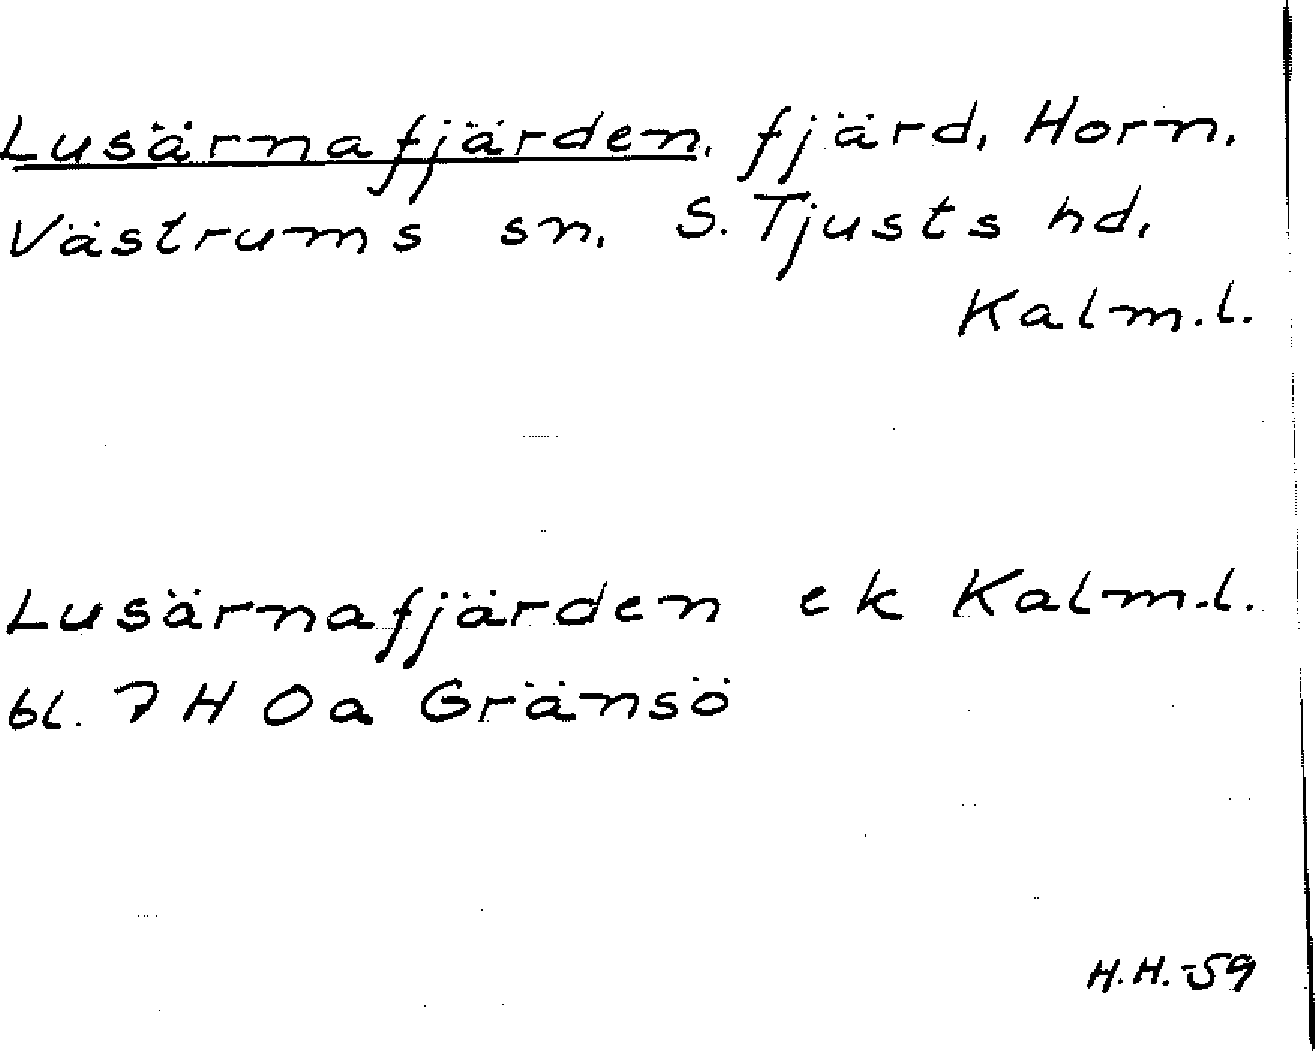 Lusärnafjärden, fjärd, Horn,
Västrums sn, S. Tjusts hd,
Kalm.l.
Lusärnafjärden ek Kalm.l.
bl. 7 H 0a Gränsö
H.H.-59